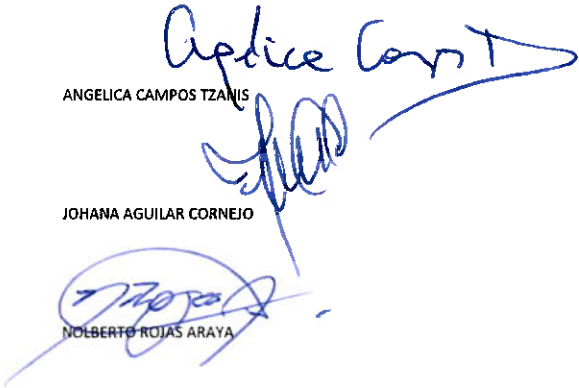 Agelica Camps T
ANGELICA CAMPOS TZANIS
JOHANA AGUILAR CORNEJO
NOLBERTO ROJAS ARAYA